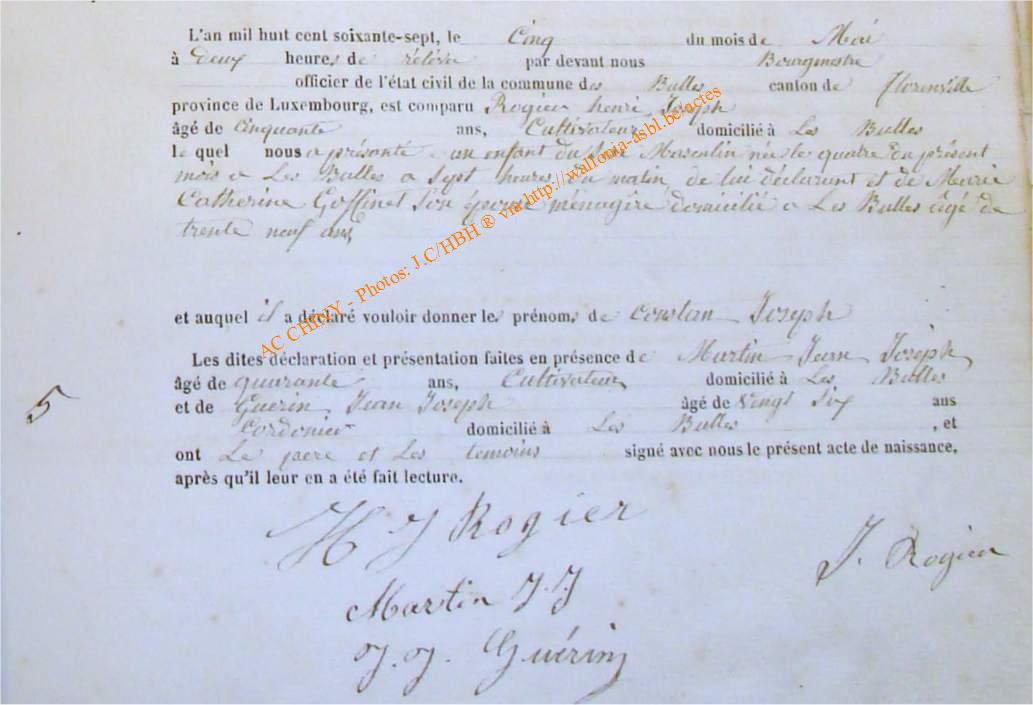 L'an mil huit cent soixante-sept, le Cinq du mois de Mai
à deux heures de rélévé par devant nous Bourgmestre
officier de l'état civil de la commune des Bulles canton de Florenville
province de Luxembourg, est comparu Rogier henri Joseph
âgé de Cinquante ans, Cultivateur domicilié à Les Bulles
le quel nous a présanté un enfant du Masculin née le quatre du présent
mois a Les Bulles a sept heures du matin, de lui déclarant et de Marie
Catherine Goffinet son épouse ménagire domicilié a Les Bulles âgé de
trente neuf ans,
et auquel il a déclaré vouloir donner les prénoms de Constan Joseph
Les dites déclaration et présentation faites en présence de Martin Jean Joseph
âgé de quarante ans, Cultivateur domicilié à Les Bulles
5
et de Guerin Jean Joseph âgé de Vingt Six ans
Cordonier domicilié à Les Bulles , et
ont Le pere et Les temoins signé avec nous le présent acte de naissance,
après qu'il leur en a été fait lecture.
H J Rogier
J. Rogier
Martin J.J
J. J. Guérin
AC CHINY - Photos: J.C/HBH ® via http://wallonia-asbl.be/actes